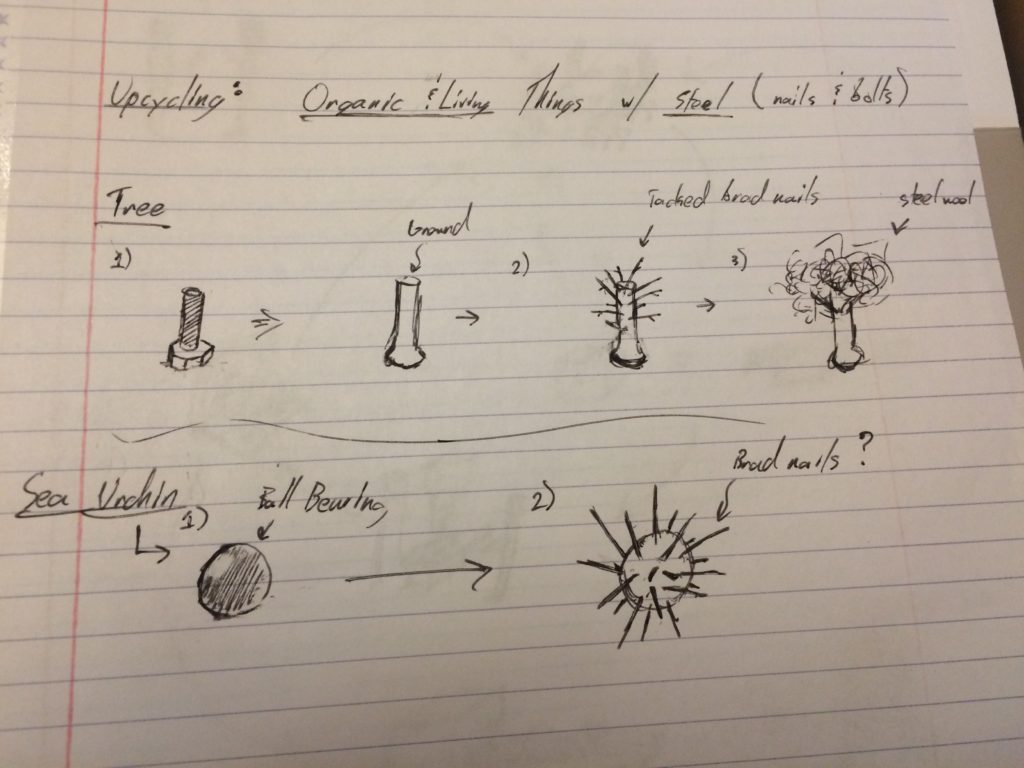 Upcycling: Organic & Living Things w/ Steel (nails & bolts)
Tree
1)
Ground
2)
Tacked brad nails
3)
steel wool
Sea Urchin
1)
Ball Bearing
2)
Brad nails?